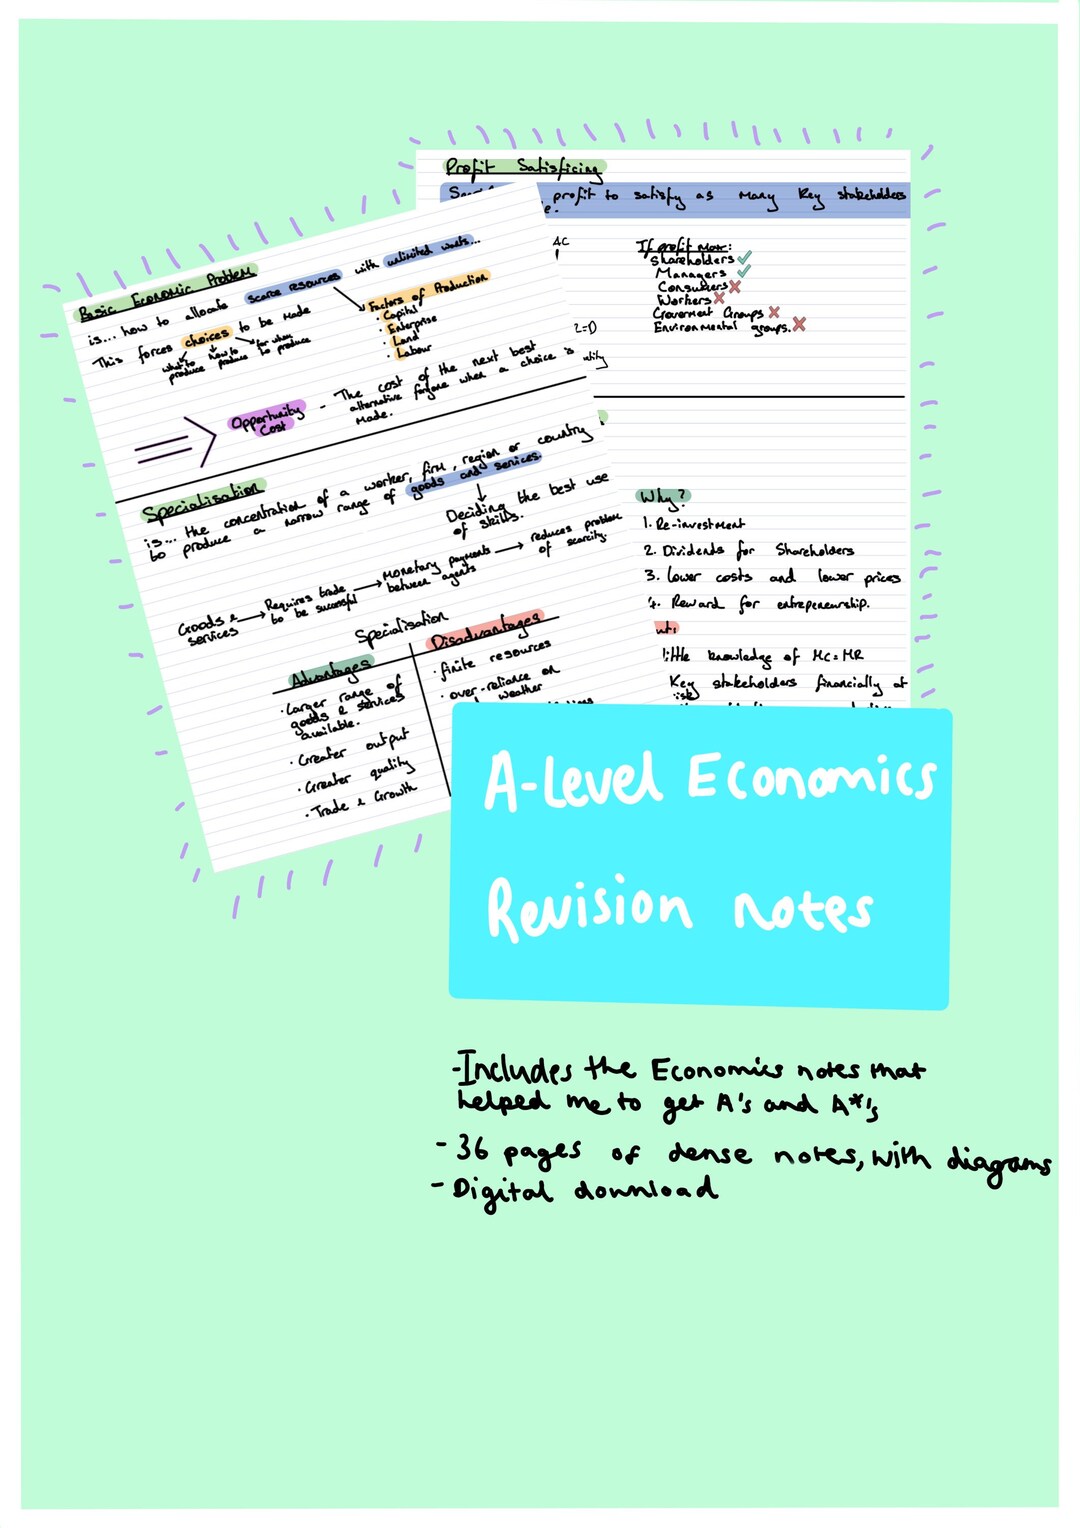 Profit Satisficing
profit to satisfy as many key stakeholders
If profit max:
Shareholders
Managers
Consumers
Workers
Goverment Groups
Environmental groups.
Why?
1. Re-investment
2. Dividends for Shareholders
3. lower costs and lower prices
4. Reward for entrepeneurship.
little knowledge of MC=MR
Key stakeholders financially at
risk
Basic Economic Problem
is... how to allocate scarce resources with unlimited wants...
This forces choices to be made
what to produce
how to produce
for whom to produce
Factors of Production
· Capital
· Enterprise
· Land
· Labour
Opportunity
Cost
- The cost of the next best
alternative forgone when a choice is
made.
Specialisation
is... the concentration of a worker, firm, region or country
to produce a narrow range of goods and services.
Deciding the best use
of skills.
Goods &
services
Requires trade
to be successful
Monetary payments
between agents
reduces problem
of scarcity.
Specialisation
Advantages
· Larger range of
goods & services
available.
· Greater output
· Greater quality
· Trade & Growth
Disadvantages
· finite resources
· over-reliance on
weather
A-Level Economics
Revision notes
-Includes the Economics notes that
helped me to get A's and A*'s
- 36 pages of dense notes, with diagrams
- Digital download